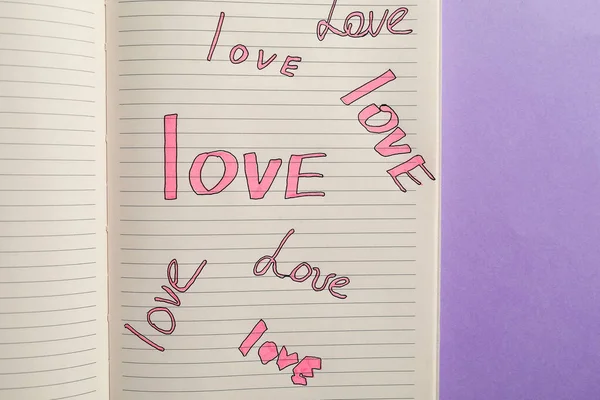 Love
love
love
love
Love
love
love